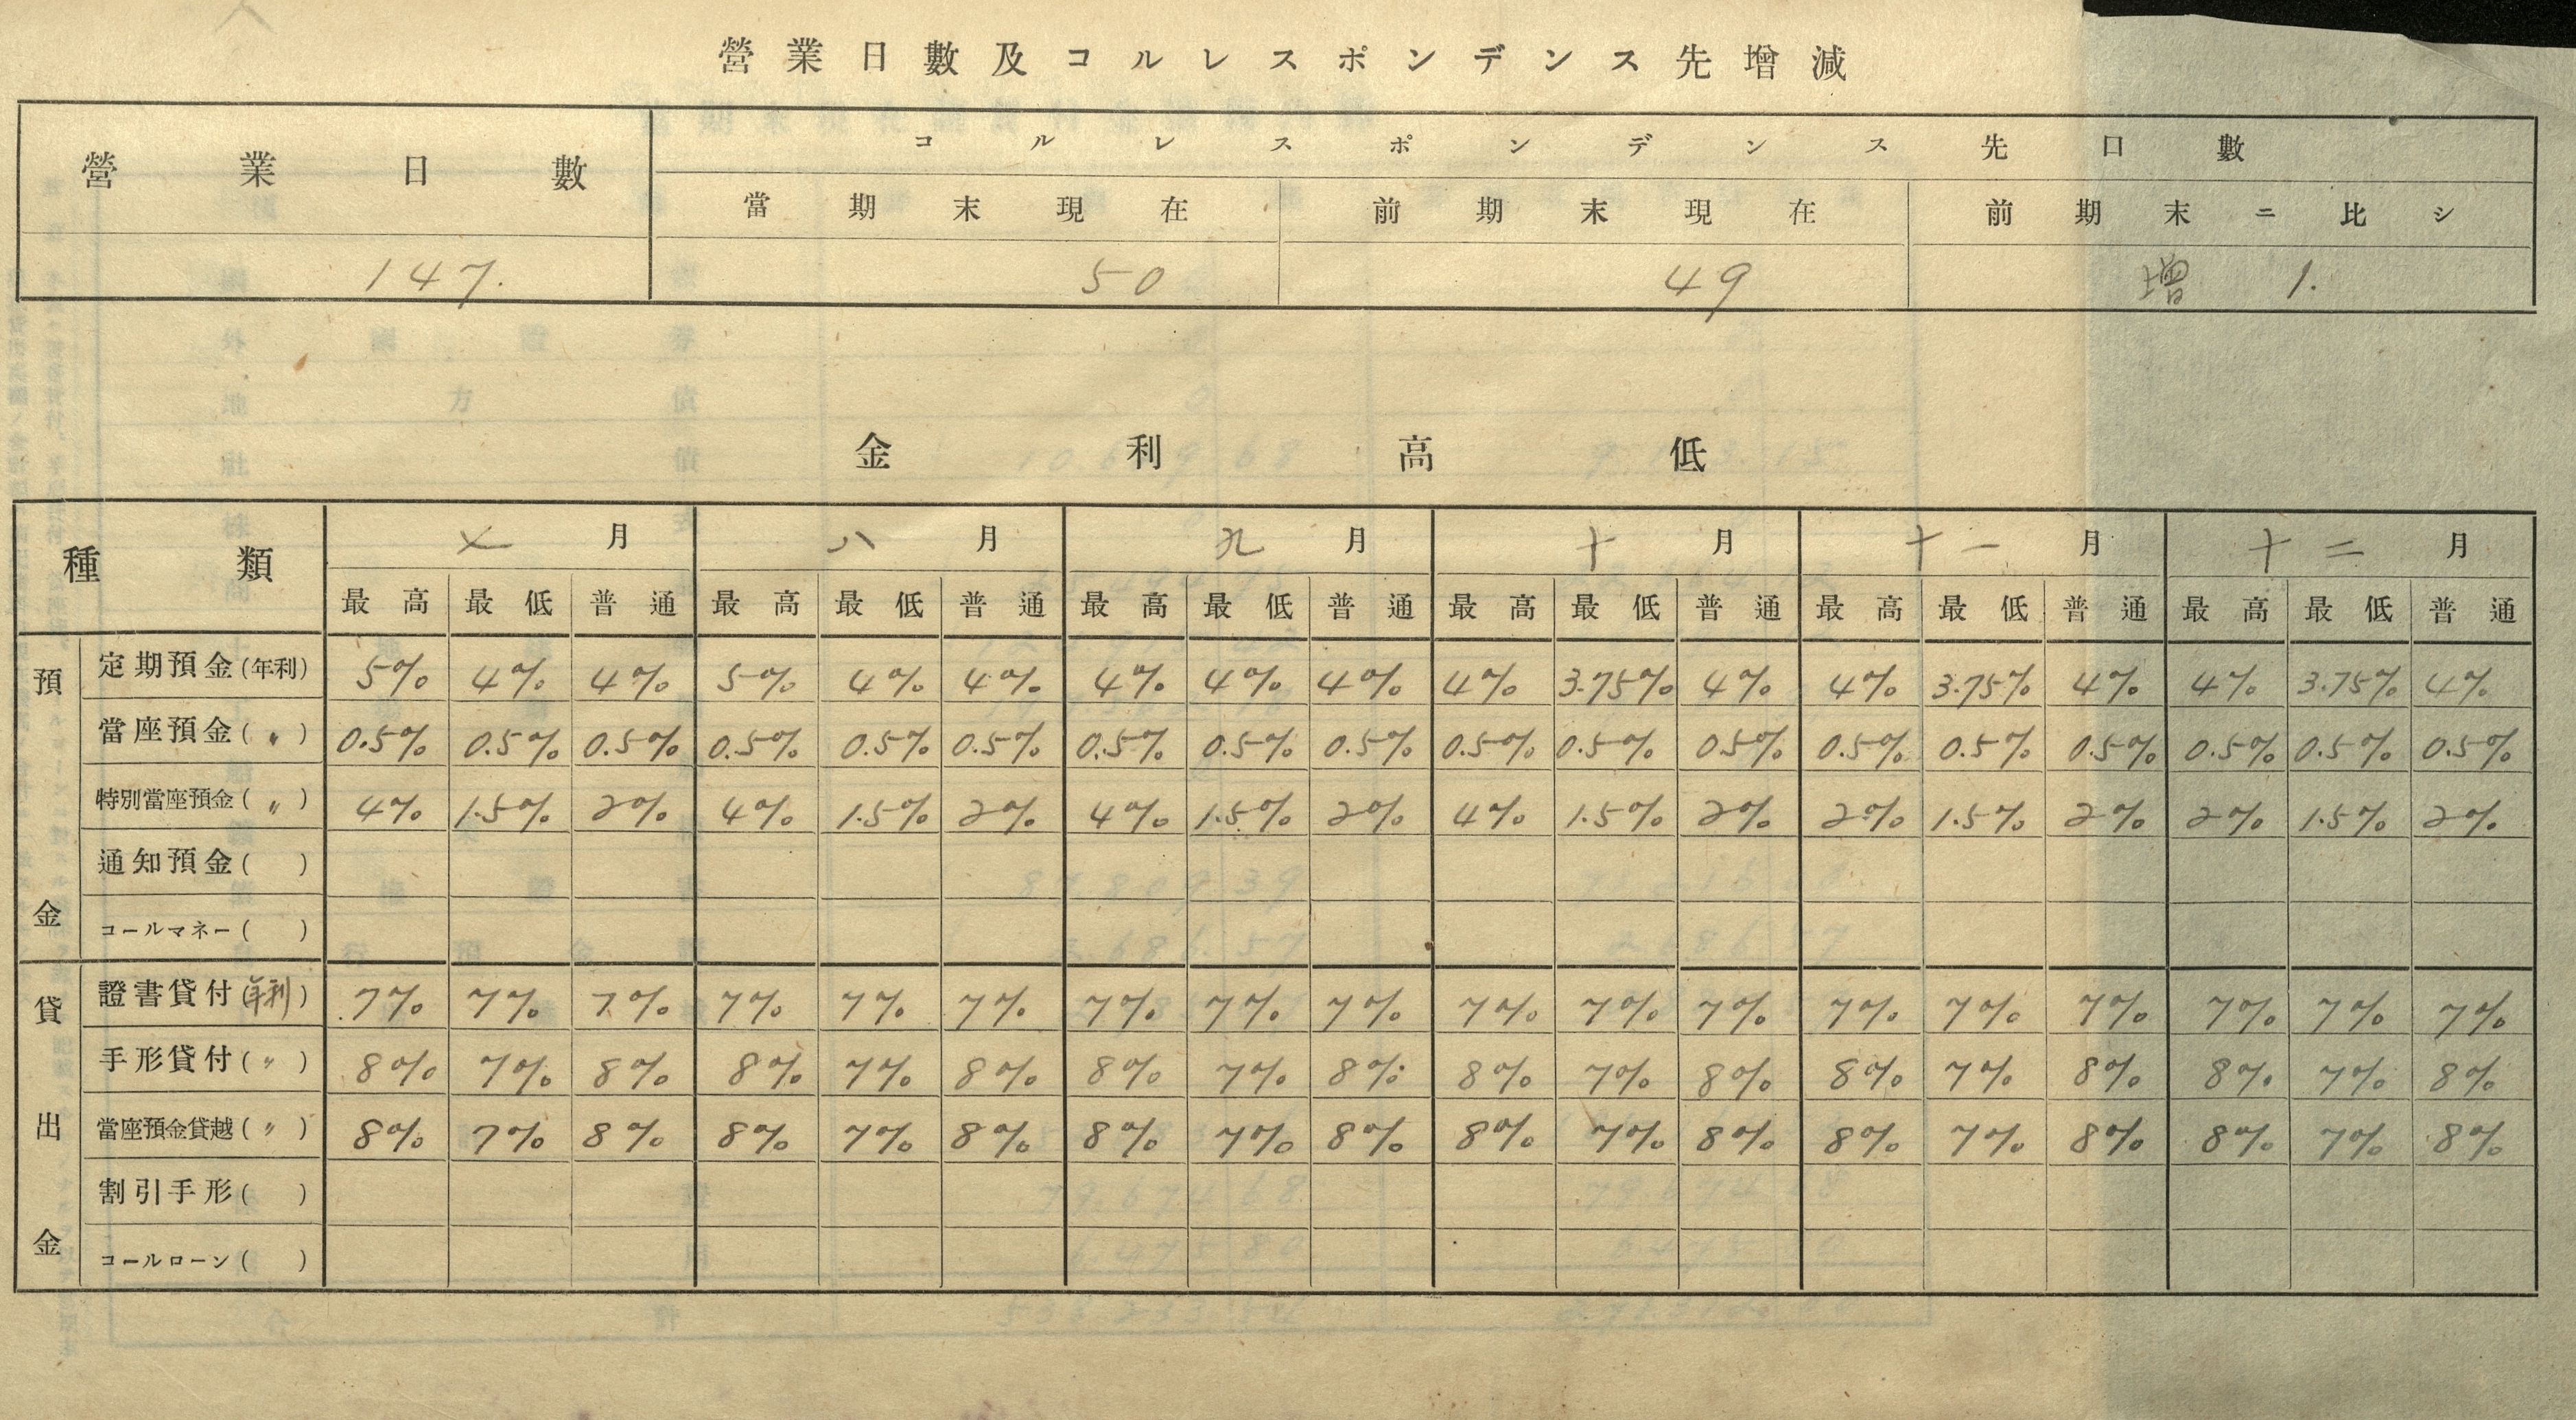 營業日數及コルレスポンデンス先增減
營業日數 コルレスポンデンス先口數
當期末現在 前期末現在 前期末ニ比シ
147. 50 49 增 1.
金利高低
種類 七月 八月 九月 十月 十一月 十二月
最高 最低 普通 最高 最低 普通 最高 最低 普通 最高 最低 普通 最高 最低 普通 最高 最低 普通
預金
定期預金(年利) 5% 4% 4% 5% 4% 4% 4% 4% 4% 4% 3.75% 4% 4% 3.75% 4% 4% 3.75% 4%
當座預金(〃) 0.5% 0.5% 0.5% 0.5% 0.5% 0.5% 0.5% 0.5% 0.5% 0.5% 0.5% 0.5% 0.5% 0.5% 0.5% 0.5% 0.5% 0.5%
特別當座預金(〃) 4% 1.5% 2% 4% 1.5% 2% 4% 1.5% 2% 4% 1.5% 2% 2% 1.5% 2% 2% 1.5% 2%
通知預金( )
コールマネー( )
貸出金
證書貸付(年利) 7% 7% 7% 7% 7% 7% 7% 7% 7% 7% 7% 7% 7% 7% 7% 7% 7% 7%
手形貸付(〃) 8% 7% 8% 8% 7% 8% 8% 7% 8% 8% 7% 8% 8% 7% 8% 8% 7% 8%
當座預金貸越(〃) 8% 7% 8% 8% 7% 8% 8% 7% 8% 8% 7% 8% 8% 7% 8% 8% 7% 8%
割引手形( )
コールローン( )